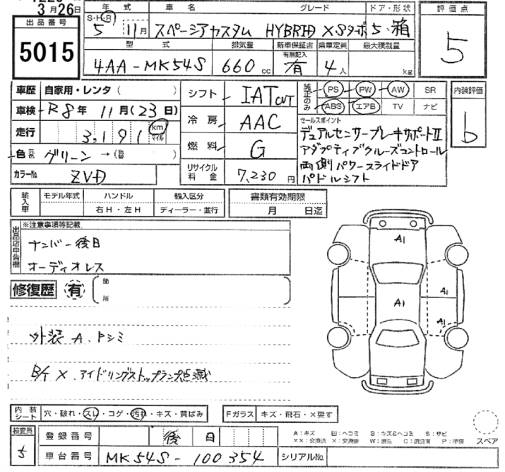 3月26日
出品番号
5015
年式 車名 グレード ドア・形状
S・H・R
5年 11月 スペーシアカスタム HYBRID XSターボ 5・箱
型式 排気量 新車保証書 乗車定員 最大積載量
有無記入
4AA-MK54S 660 cc 有 4人 kg
評価点
5
車歴 自家用・レンタ( )
車検 R8年 11月(23日)
走行 3,191 km マイル
色 グリーン →(替 )
カラーNo ZVD
シフト IAT CVT
冷房 AAC
燃料 G
リサイクル料金 7,230円
純正のみ PS PW AW SR
ABS エアB TV ナビ
内装評価
b
セールスポイント
デュアルセンサーブレーキサポートⅡ
アダプティブクルーズコントロール
両側パワースライドドア
パドルシフト
輸入車 モデル年式 ハンドル 輸入区分
右H・左H ディーラー・並行
書類有効期限
月 日迄
出品店申告欄
※注意事項等記載
ナンバー後日
オーディオレス
修復歴 有 箇所
外装 A、ドシミ
B/T ×、アイドリングストップランプ点滅
A1
A1
A1
内装シート 穴・破れ・スレ・コゲ・汚れ・キズ・黄ばみ
Fガラス キズ・飛石・×要す
5
登録番号 後日
車台番号 MK54S-100354
シリアルNo.
A:キズ
スペア